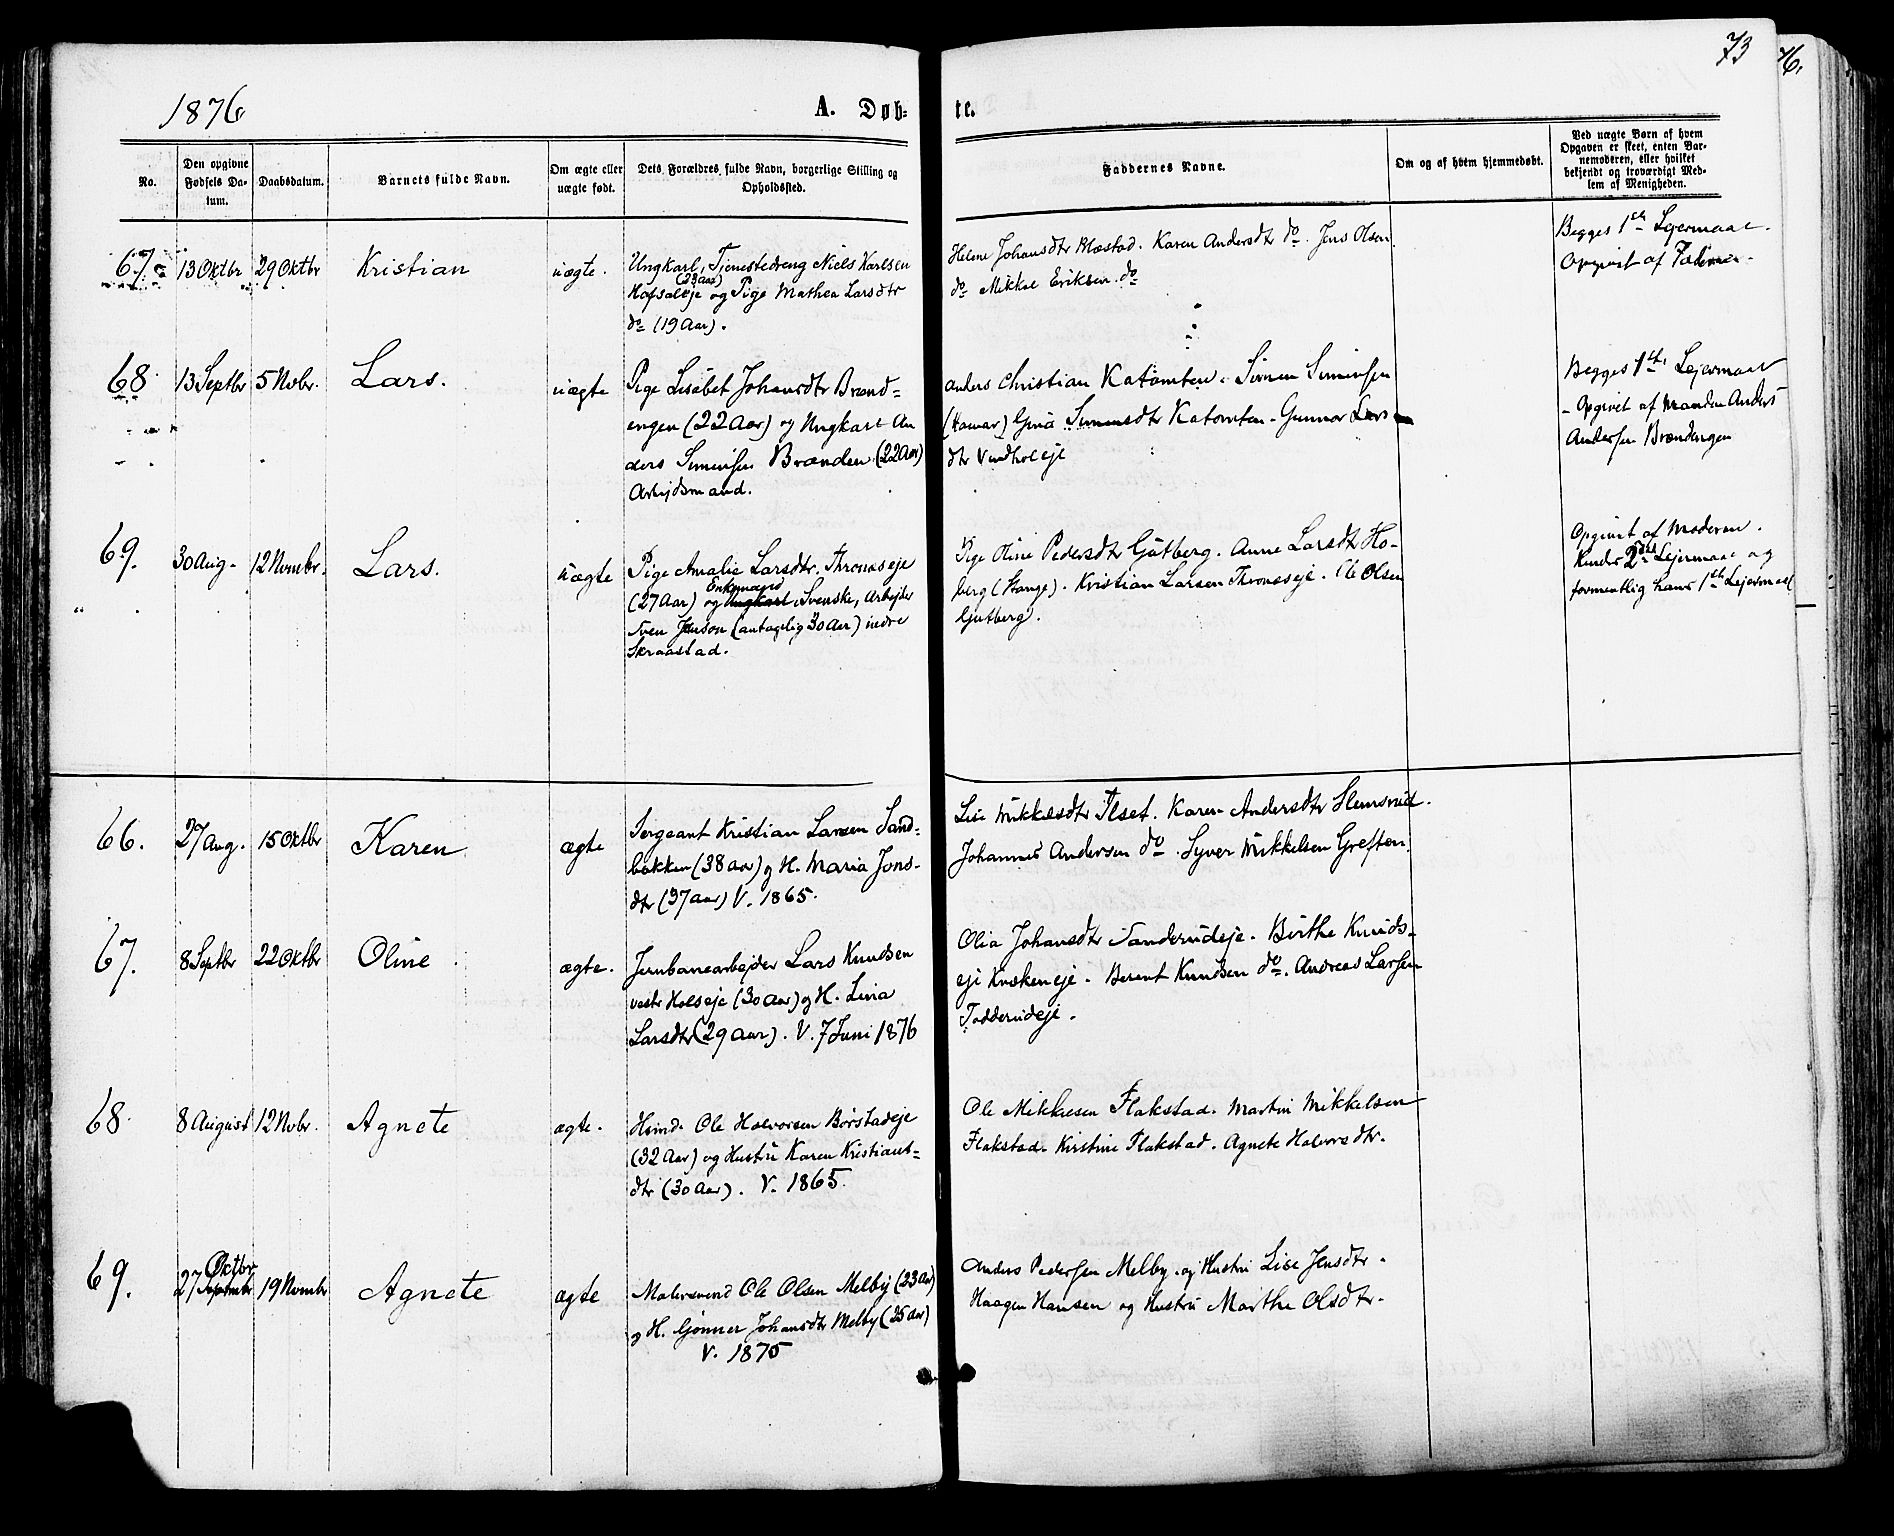 73
76.
1876
A. Døb-
te.
No.
Den opgivne
Fødsels Da-
tum.
Daabsdatum.
Barnets fulde Navn.
Om ægte eller
uægte født.
Dets Forældres fulde Navn, borgerlige Stilling og
Opholdssted.
Faddernes Navne.
Om og af hvem hjemmedøbt.
Ved uægte Børn af hvem
Opgaven er skeet, enten Bar-
nemoderen, eller hvilket
bekjendt og troværdigt Med-
lem af Menigheden.
67.
13 Oktbr
29 Oktbr
Kristian
uægte.
Ungkarl, Tjenestedreng Niels Karlsen
Hofsaleje og Pige Mathea Larsdtr
do (19 Aar).
Helene Johansdtr Mæstad. Karen Andersdtr do. Jens Olsen
do Mikkel Eriksen do
Begges 1ste Lejermaal.
Opgivet af Faderen.
68
13 Septbr
5 Novbr.
Lars.
uægte
Pige Lisabet Johansdtr Brænd-
engen (22 Aar) og Ungkarl An
ders Simensen Brænden (22 Aar)
Arbejdsmand.
Anders Christian Katomten. Simen Simensen
(Hamar) Gina Simensdtr Katomten. Gunnor Lars
dtr Vindholeje
Begges 1ste Lejermaal
- Opgivet af Manden Anders
Andersen Brændengen
69.
30 Aug.
12 Novmbr.
Lars.
uægte
Pige Amalie Larsdtr. Throneseje
Enkemand
(27 Aar) og Ungkarl, Svenske, Arbejder
Sven Jonson (antagelig 30 Aar) indre
Skraastad.
Pige Oline Pedersdtr Gutberg. Anne Larsdtr Ho-
berg (Stange). Kristian Larsen Throneseje. Ole Olsen
Gutberg.
Opgivet af Moderen.
Hendes 2det Lejermaal og
formentlig hans 1ste Lejermaal
66.
27 Aug.
15 Oktbr
Karen
ægte
Sergeant Kristian Larsen Sand-
bakken (38 aar) og H. Maria Jons-
dtr (37 aar) V. 1865.
Lise Mikkelsdtr Ilset. Karen Andersdtr Slemsrud.
Johannes Andersen do. Syver Mikkelsen Greften.
67.
8 Septbr
22 Oktbr
Oline
ægte.
Jernbanearbejder Lars Knudsen
vestr Holseje (30 Aar) og H. Lina
Larsdtr (29 Aar). V. 7 Juni 1876
Olia Johansdtr Sanderudeje. Birthe Knuds-
eje Kvækeneje. Berent Knudsen do. Andreas Larsen
Todderudeje.
68.
8 August
12 Novbr.
Agnete
ægte.
Hmd. Ole Halvorsen Børstadeje
(32 Aar) og Hustru Karen Kristians-
dtr (30 Aar). V. 1865.
Ole Mikkelsen Flakstad. Martin Mikkelsen
Flakstad. Kirstine Flakstad. Agnete Halvorsdtr.
69.
Oktbr.
27 Septmbr
19 Novmbr
Agnete
ægte
Malersvend Ole Olsen Melby (23 Aar)
og H. Gønner Johansdtr Melby (25 Aar)
V. 1875
Anders Pedersen Melby og Hustru Lise Jensdtr.
Haagen Hansen og Hustru Marthe Olsdtr.